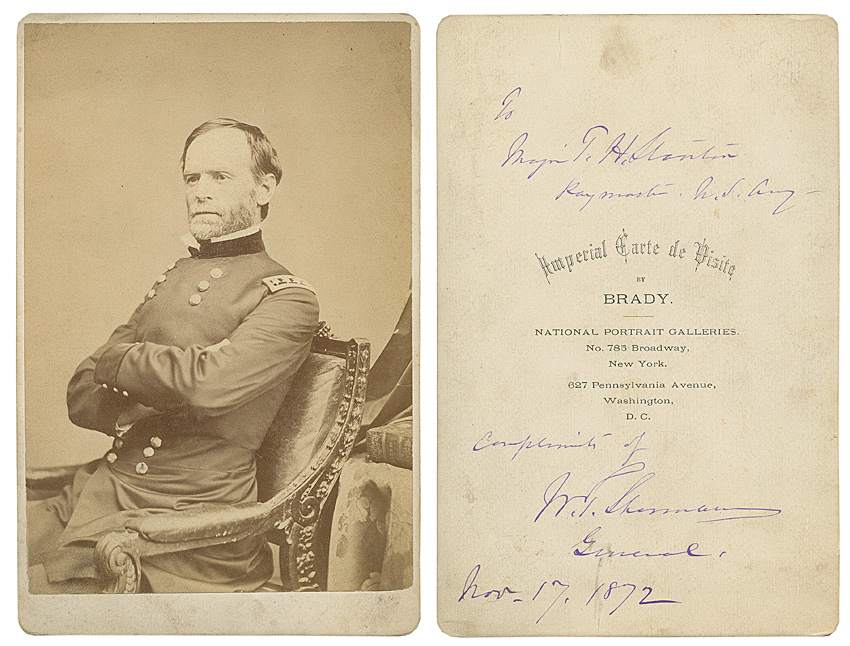 To
Major T. H. Stanton
Paymaster. U.S. Army
Imperial Carte de Visite
BY
BRADY.
NATIONAL PORTRAIT GALLERIES.
No. 785 Broadway,
New York.
627 Pennsylvania Avenue,
Washington,
D. C.
Compliments of
W. T. Sherman
General.
Nov. 17. 1872